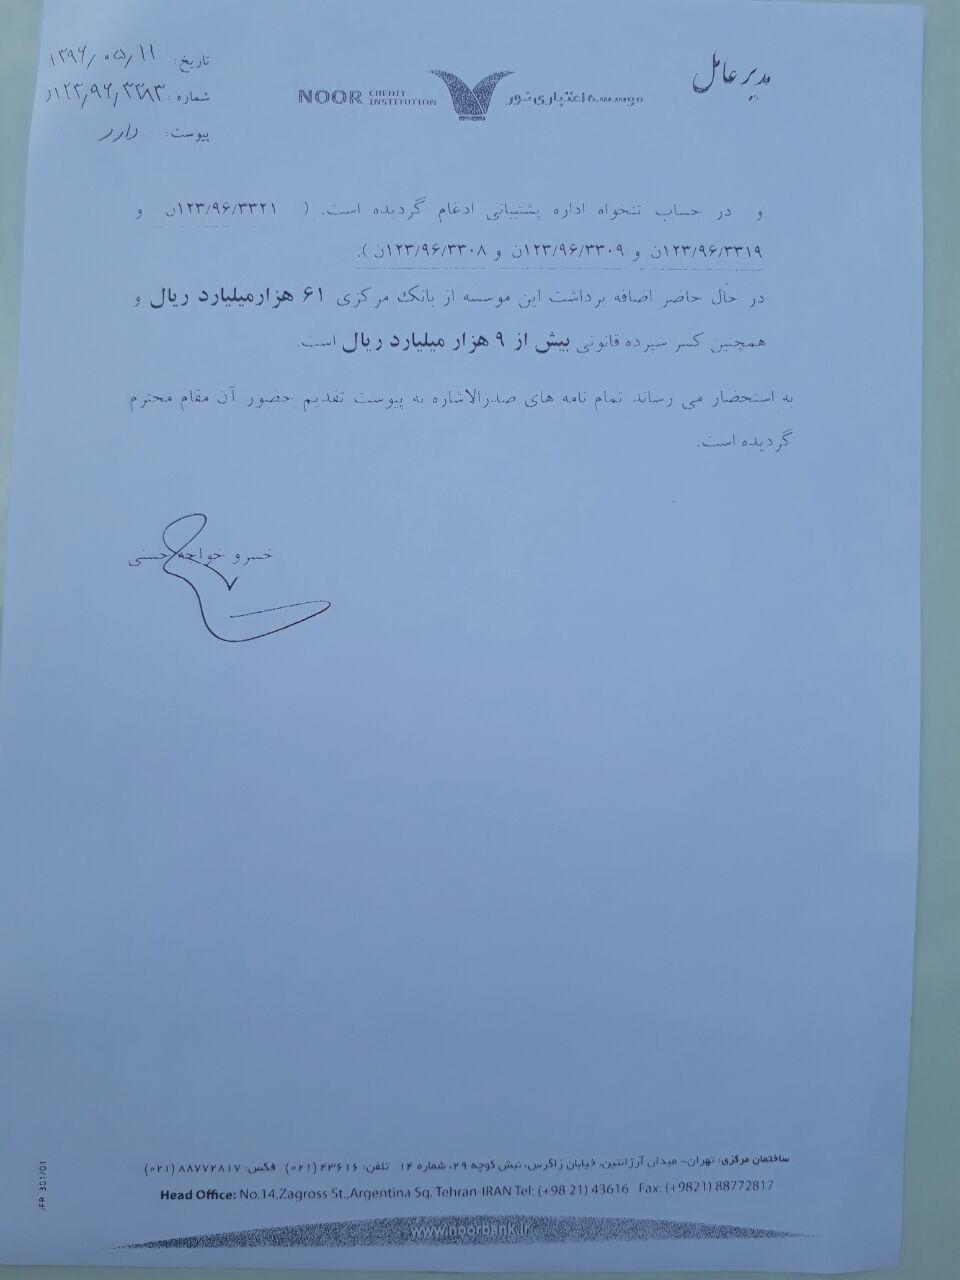 مدیر عامل
NOOR CREDIT INSTITUTION
موسسه اعتباری نور
تاریخ: ۱۳۹۶/۰۵/۱۱
شماره: ۱۲۳/۹۶/۳۳۸۳/ر
پیوست: دارد
و در حساب تنخواه اداره پشتیبانی ادغام گردیده است. ( ۱۲۳/۹۶/۳۳۲۱ن و
۱۲۳/۹۶/۳۳۱۹ن و ۱۲۳/۹۶/۳۳۰۹ن و ۱۲۳/۹۶/۳۳۰۸ن ).
در حال حاضر اضافه برداشت این موسسه از بانک مرکزی ۶۱ هزارمیلیارد ریال و
همچنین کسر سپرده قانونی بیش از ۹ هزار میلیارد ریال است.
به استحضار می رساند تمام نامه های صدرالاشاره به پیوست تقدیم حضور آن مقام محترم
گردیده است.
خسرو خواجه حسنی
ساختمان مرکزی: تهران- میدان آرژانتین، خیابان زاگرس، نبش کوچه ۲۹، شماره ۱۴ تلفن: ۴۳۶۱۶ (۰۲۱) فکس: ۸۸۷۷۲۸۱۷ (۰۲۱)
Head Office: No.14,Zagross St.,Argentina Sq. Tehran-IRAN Tel: (+98 21) 43616 Fax: (+9821) 88772817
www.noorbank.ir